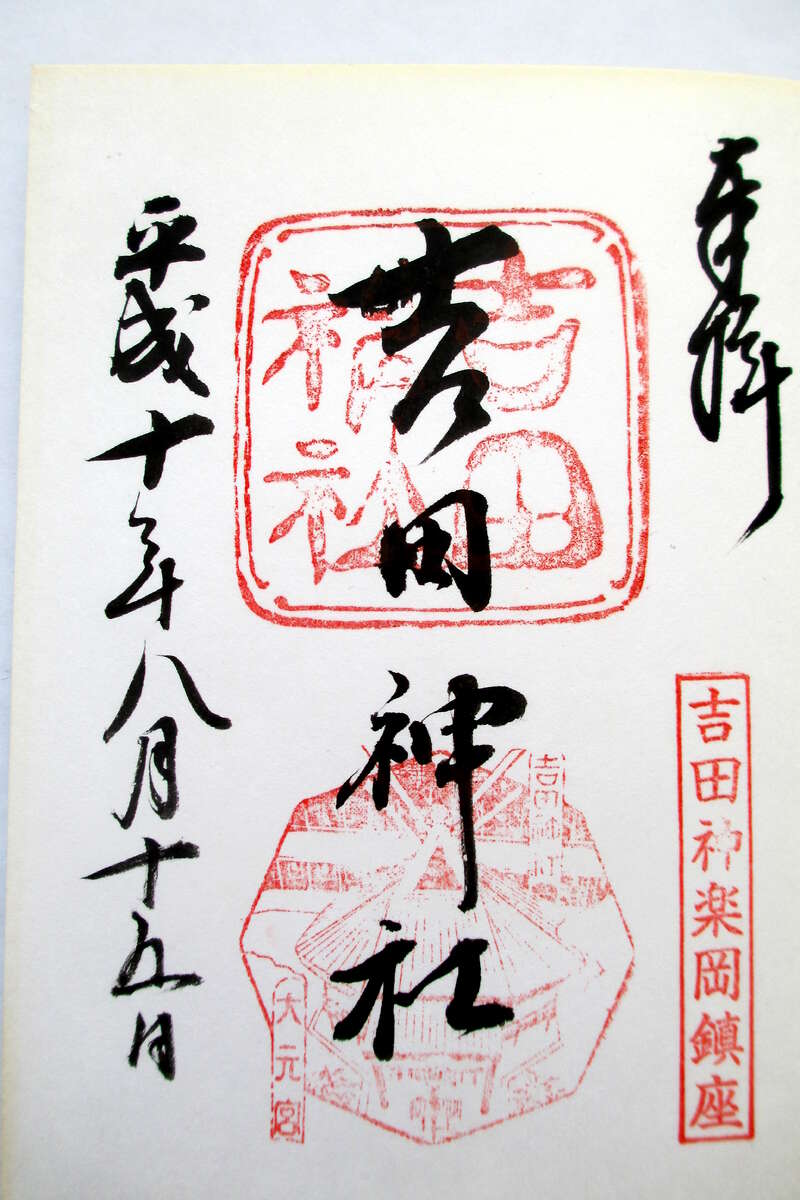 奉拝
吉田神楽岡鎮座
吉田神社
吉田
神社
吉田神社
大元宮
平成十年八月十五日